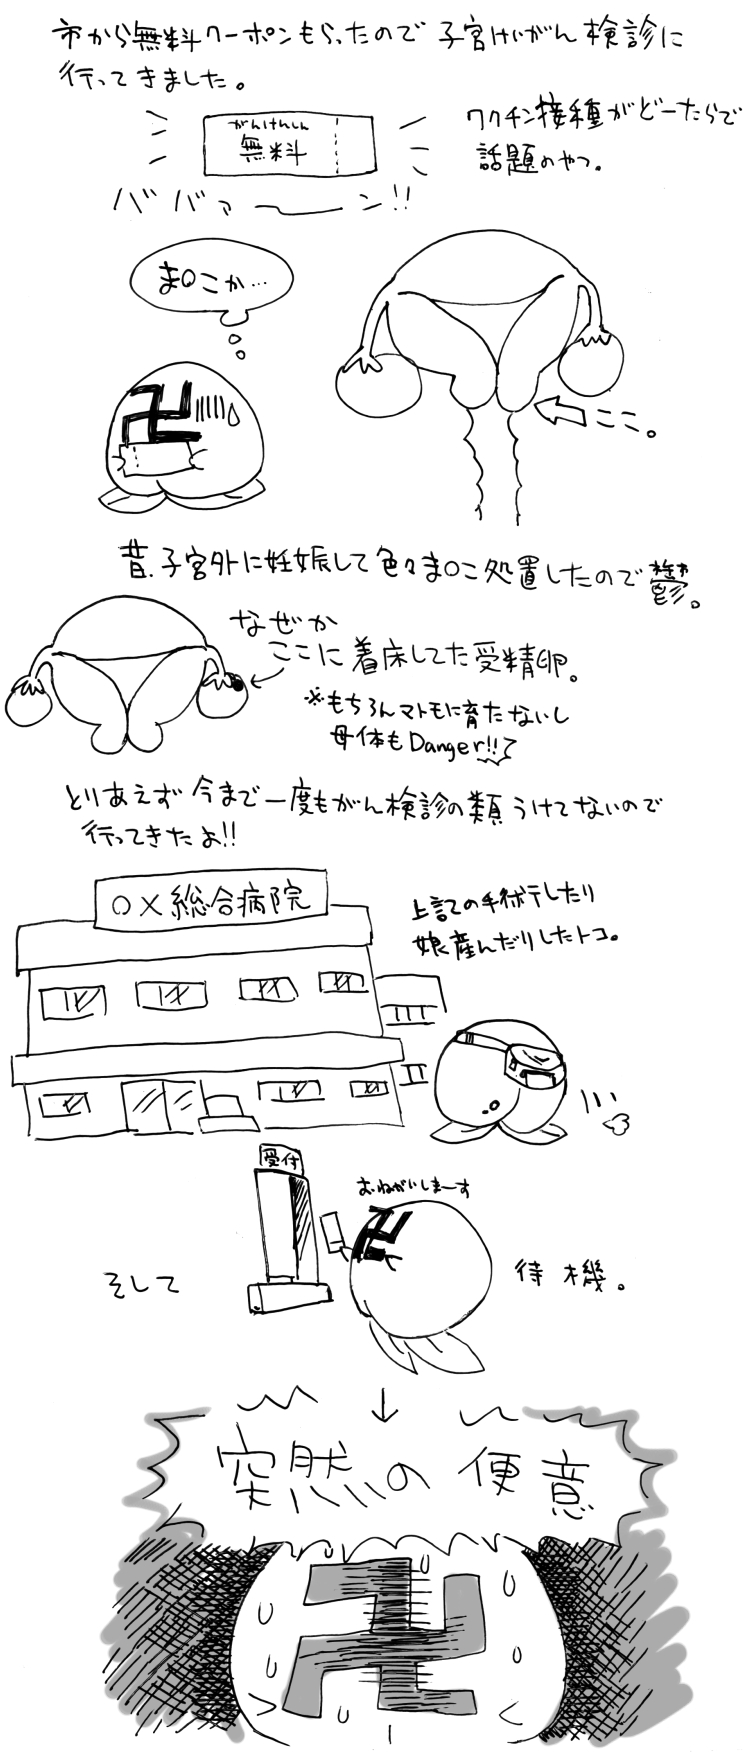 市から無料クーポンもらったので子宮けいがん検診に
行ってきました。
がんけんしん
無料
ワクチン接種がどーたらで
話題のやつ。
ババァーーン!!
ま〇こか…
ここ。
昔、子宮外に妊娠して色々ま〇こ処置したので鬱。
なぜか
ここに着床してた受精卵。
※もちろんマトモに育たないし
母体もDanger!!
とりあえず今まで一度もがん検診の類うけてないので
行ってきたよ!!
〇×総合病院
上記の手術したり
娘産んだりしたトコ。
受付
おねがいしまーす
そして
待機。
突然の便意